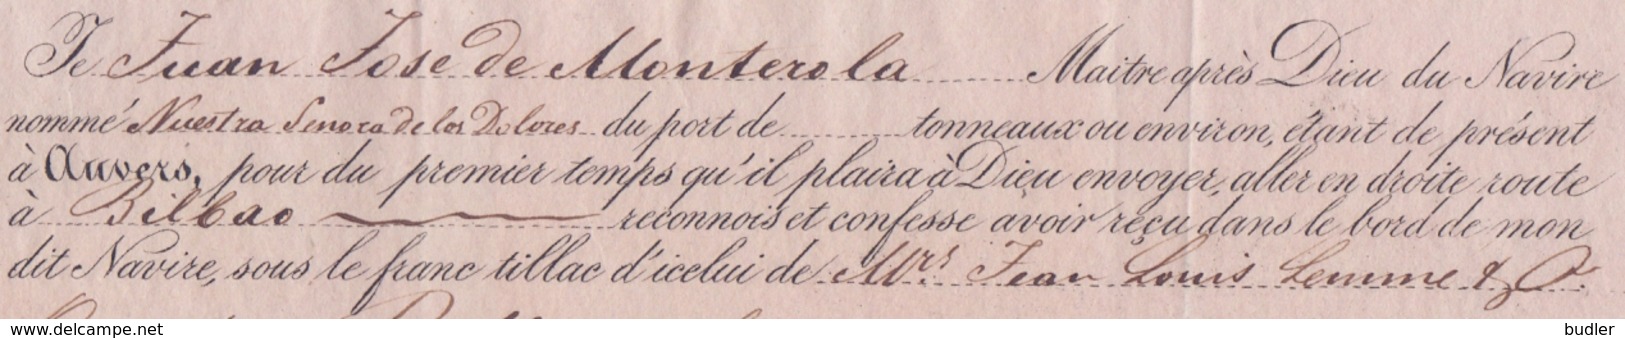 Je Juan Jose de Monterola Maitre après Dieu du Navire
nommé Nuestra Senora de los Dolores du port de tonneaux ou environ, étant de présent
à Anvers, pour du premier temps qu'il plaira à Dieu envoyer, aller en droite route
à Bilbao reconnois et confesse avoir reçu dans le bord de mon
dit Navire, sous le franc tillac d'icelui de Mrs Jean Louis Lemme & Co.
delcampe.net
budler